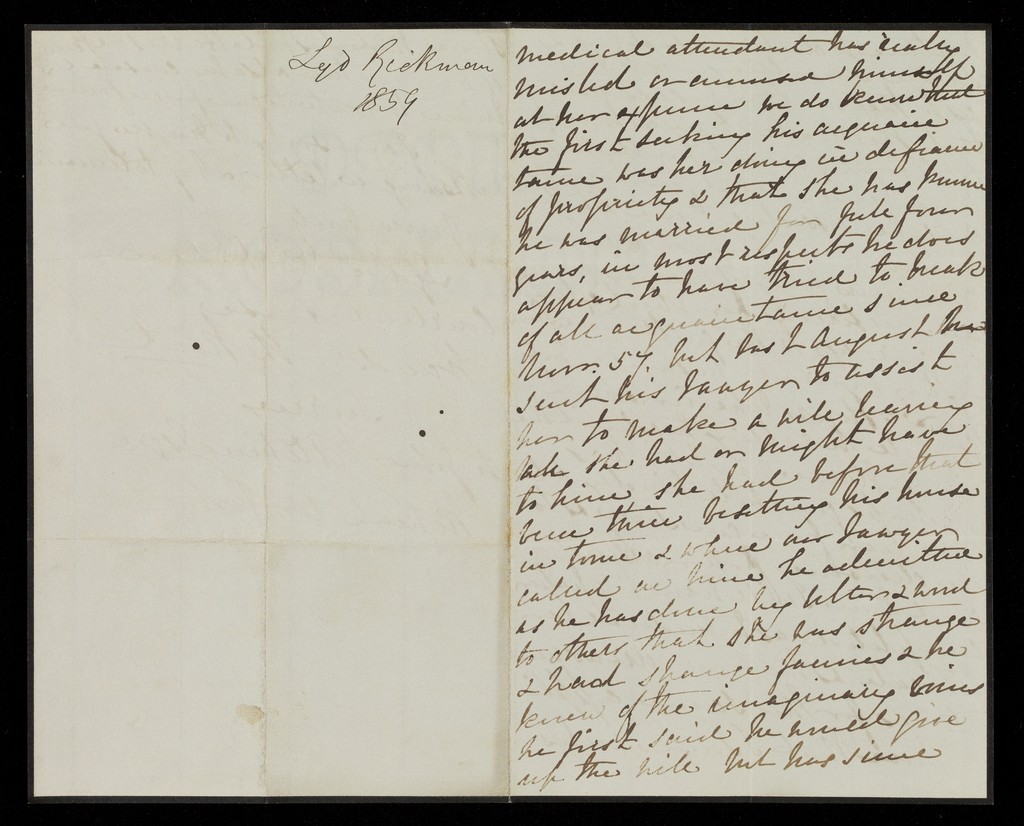 Lyd Rickman
1859
medical attendant has really
misled or amused himself
at her expense we do know that
the first seeking his acquain
tance was her doing in defiance
of propriety & that she has known
he was married for full four
years, in most respects he does
appear to have tried to break
off all acquaintance since
Novr. 57, but last August he
sent his lawyer to assist
her to make a will leaving
all she had or might have
to him, she had before that
been three besetting his house
in town & when our lawyer
called on him he admitted
as he has done by letter & word
to others that she was strange
& had strange fancies & he
knew of the imaginary voices
he first said he would give
up the will but has since